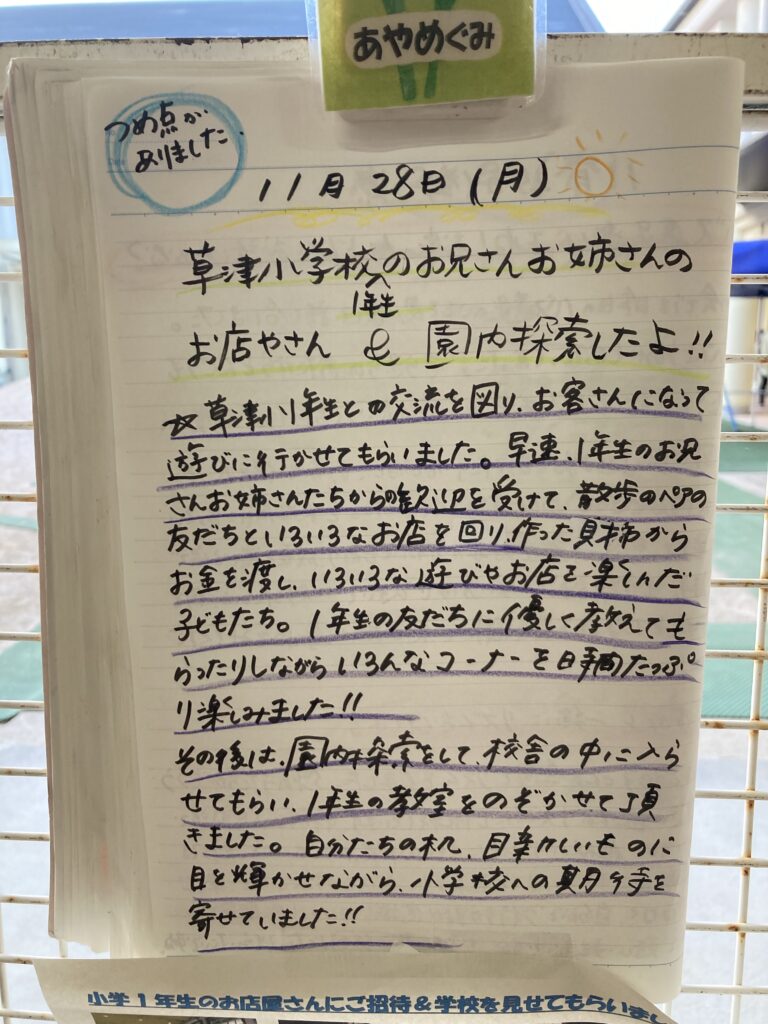 あやめぐみ
つめ点が
ありました。
11月28日(月)
草津小学校のお兄さんお姉さんの
1年生
お店やさん & 園内探索したよ!!
☆草津小1年生との交流を図り、お客さんになって
遊びに行かせてもらいました。早速、1年生のお兄
さんお姉さんたちからの歓迎を受けて、散歩のペアの
友だちといろいろなお店を回り、作った財布から
お金を渡し、いろいろな遊びやお店を楽しんだ
子どもたち。1年生の友だちに優しく教えても
らったりしながらいろんなコーナーを時間たっぷ
り楽しみました!!
その後は、園内探索をして、校舎の中に入ら
せてもらい、1年生の教室をのぞかせて頂
きました。自分たちの机、目新しいものに
目を輝かせながら、小学校への期待を
寄せていました!!
小学1年生のお店屋さんにご招待&学校を見せてもらいまし